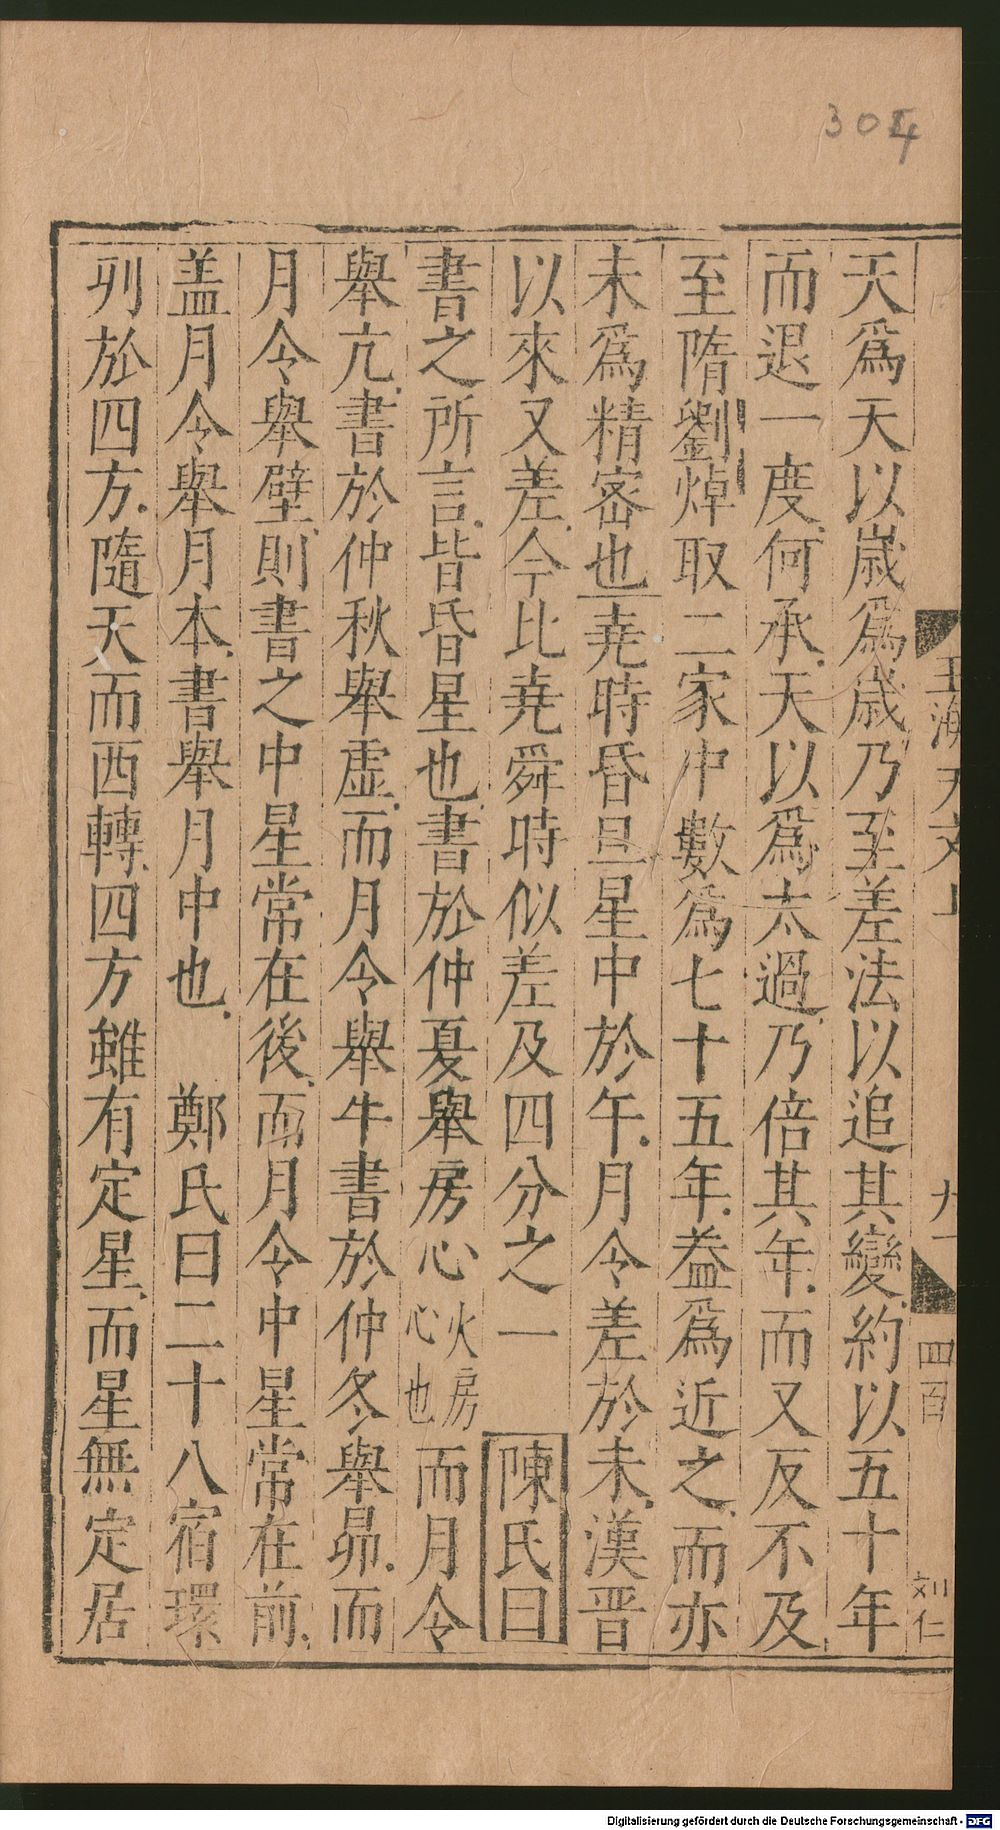 304
玉海天文上
九
四百
刘仁
天爲天以歲爲歲乃至差法以追其變約以五十年
而退一度何承天以爲太過乃倍其年而又反不及
至隋劉焯取二家中數爲七十五年葢爲近之而亦
未爲精宻也堯時昏旦星中於午月令差於未漢晋
以來又差今比堯舜時似差及四分之一 陳氏曰
書之所言皆昏星也書於仲夏舉房心火房心也而月令
舉亢書於仲秋舉虛而月令舉牛書於仲冬舉昴而
月令舉壁則書之中星常在後而月令中星常在前
盖月令舉月本書舉月中也 鄭氏曰二十八宿環
列於四方隨天而西轉四方雖有定星而星無定居
Digitalisierung gefördert durch die Deutsche Forschungsgemeinschaft - DFG